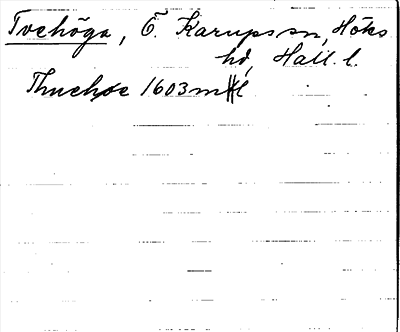 Tvehöga, Ö. Karups sn, Höks
hd, Hall. l.
Thuehøe 1603 mHl